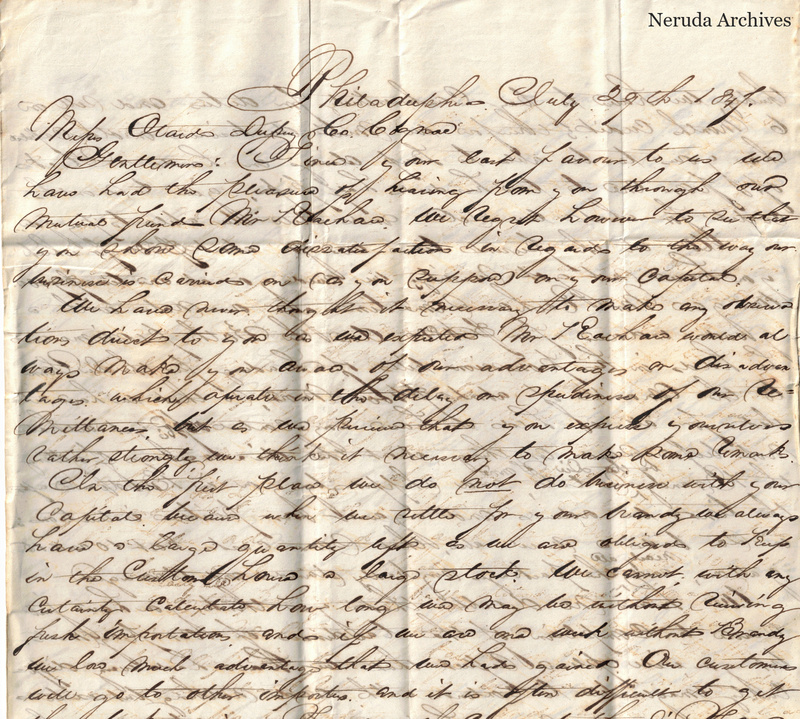 Neruda Archives
Philadelphia July 29th 187.
Mess Otards Dupuy & Co. Cognac
Gentlemens: Since your last favour to us we
have had the pleasure of hearing from you through our
mutual friend Mr We regret however to see that
you show some dissatisfaction in regards to the way our
business is carried on (as you suppose) on your Capital.
We have never thought it necessary to make any observa
tions direct to you as we expected Mr would al
ways make you aware of our advantages or disadvan
tages which operate in the delay or speediness of our Re=
mittances, but as we perceive that you express yourselves
rather strongly we think it necessary to make some remark.
In the first place we do not do business with your
Capital because when we settle for your brandy we always
have a large quantity left as we are obliged to keep
in the Custom house a large stock. We cannot with any
certainty calculate how long we may be without receiving
fresh importations and if we are one week without Brandy
we lose much advantage that we had gained Our customers
will go to other importers. and it is often difficult to get